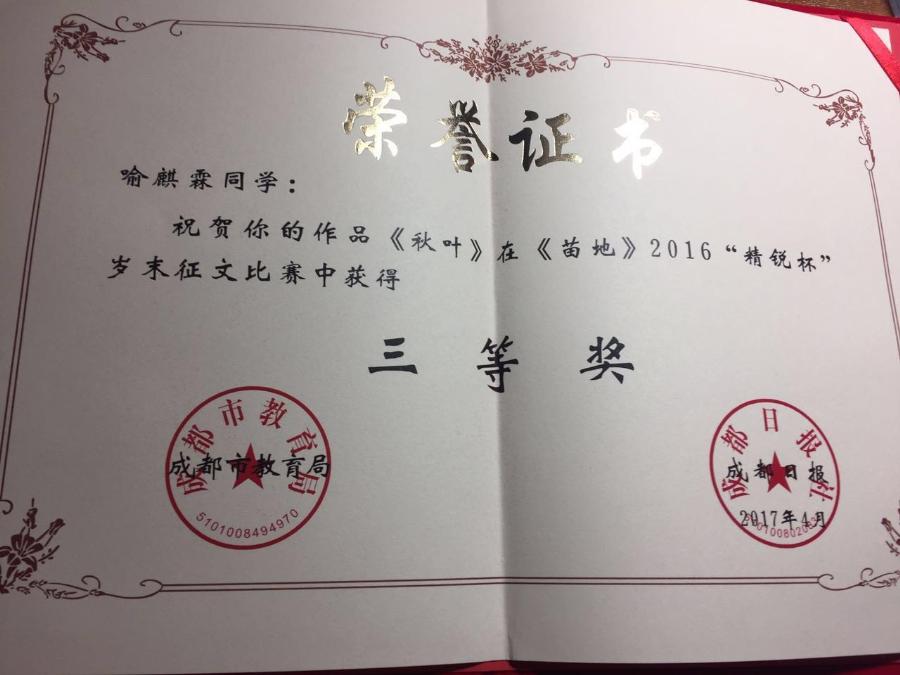 荣誉证书
喻麒霖同学：
祝贺你的作品《秋叶》在《苗地》2016“精锐杯”
岁末征文比赛中获得
三等奖
成都市教育局
成都市教育局
5101008494970
成都日报社
成都日报
2017年4月